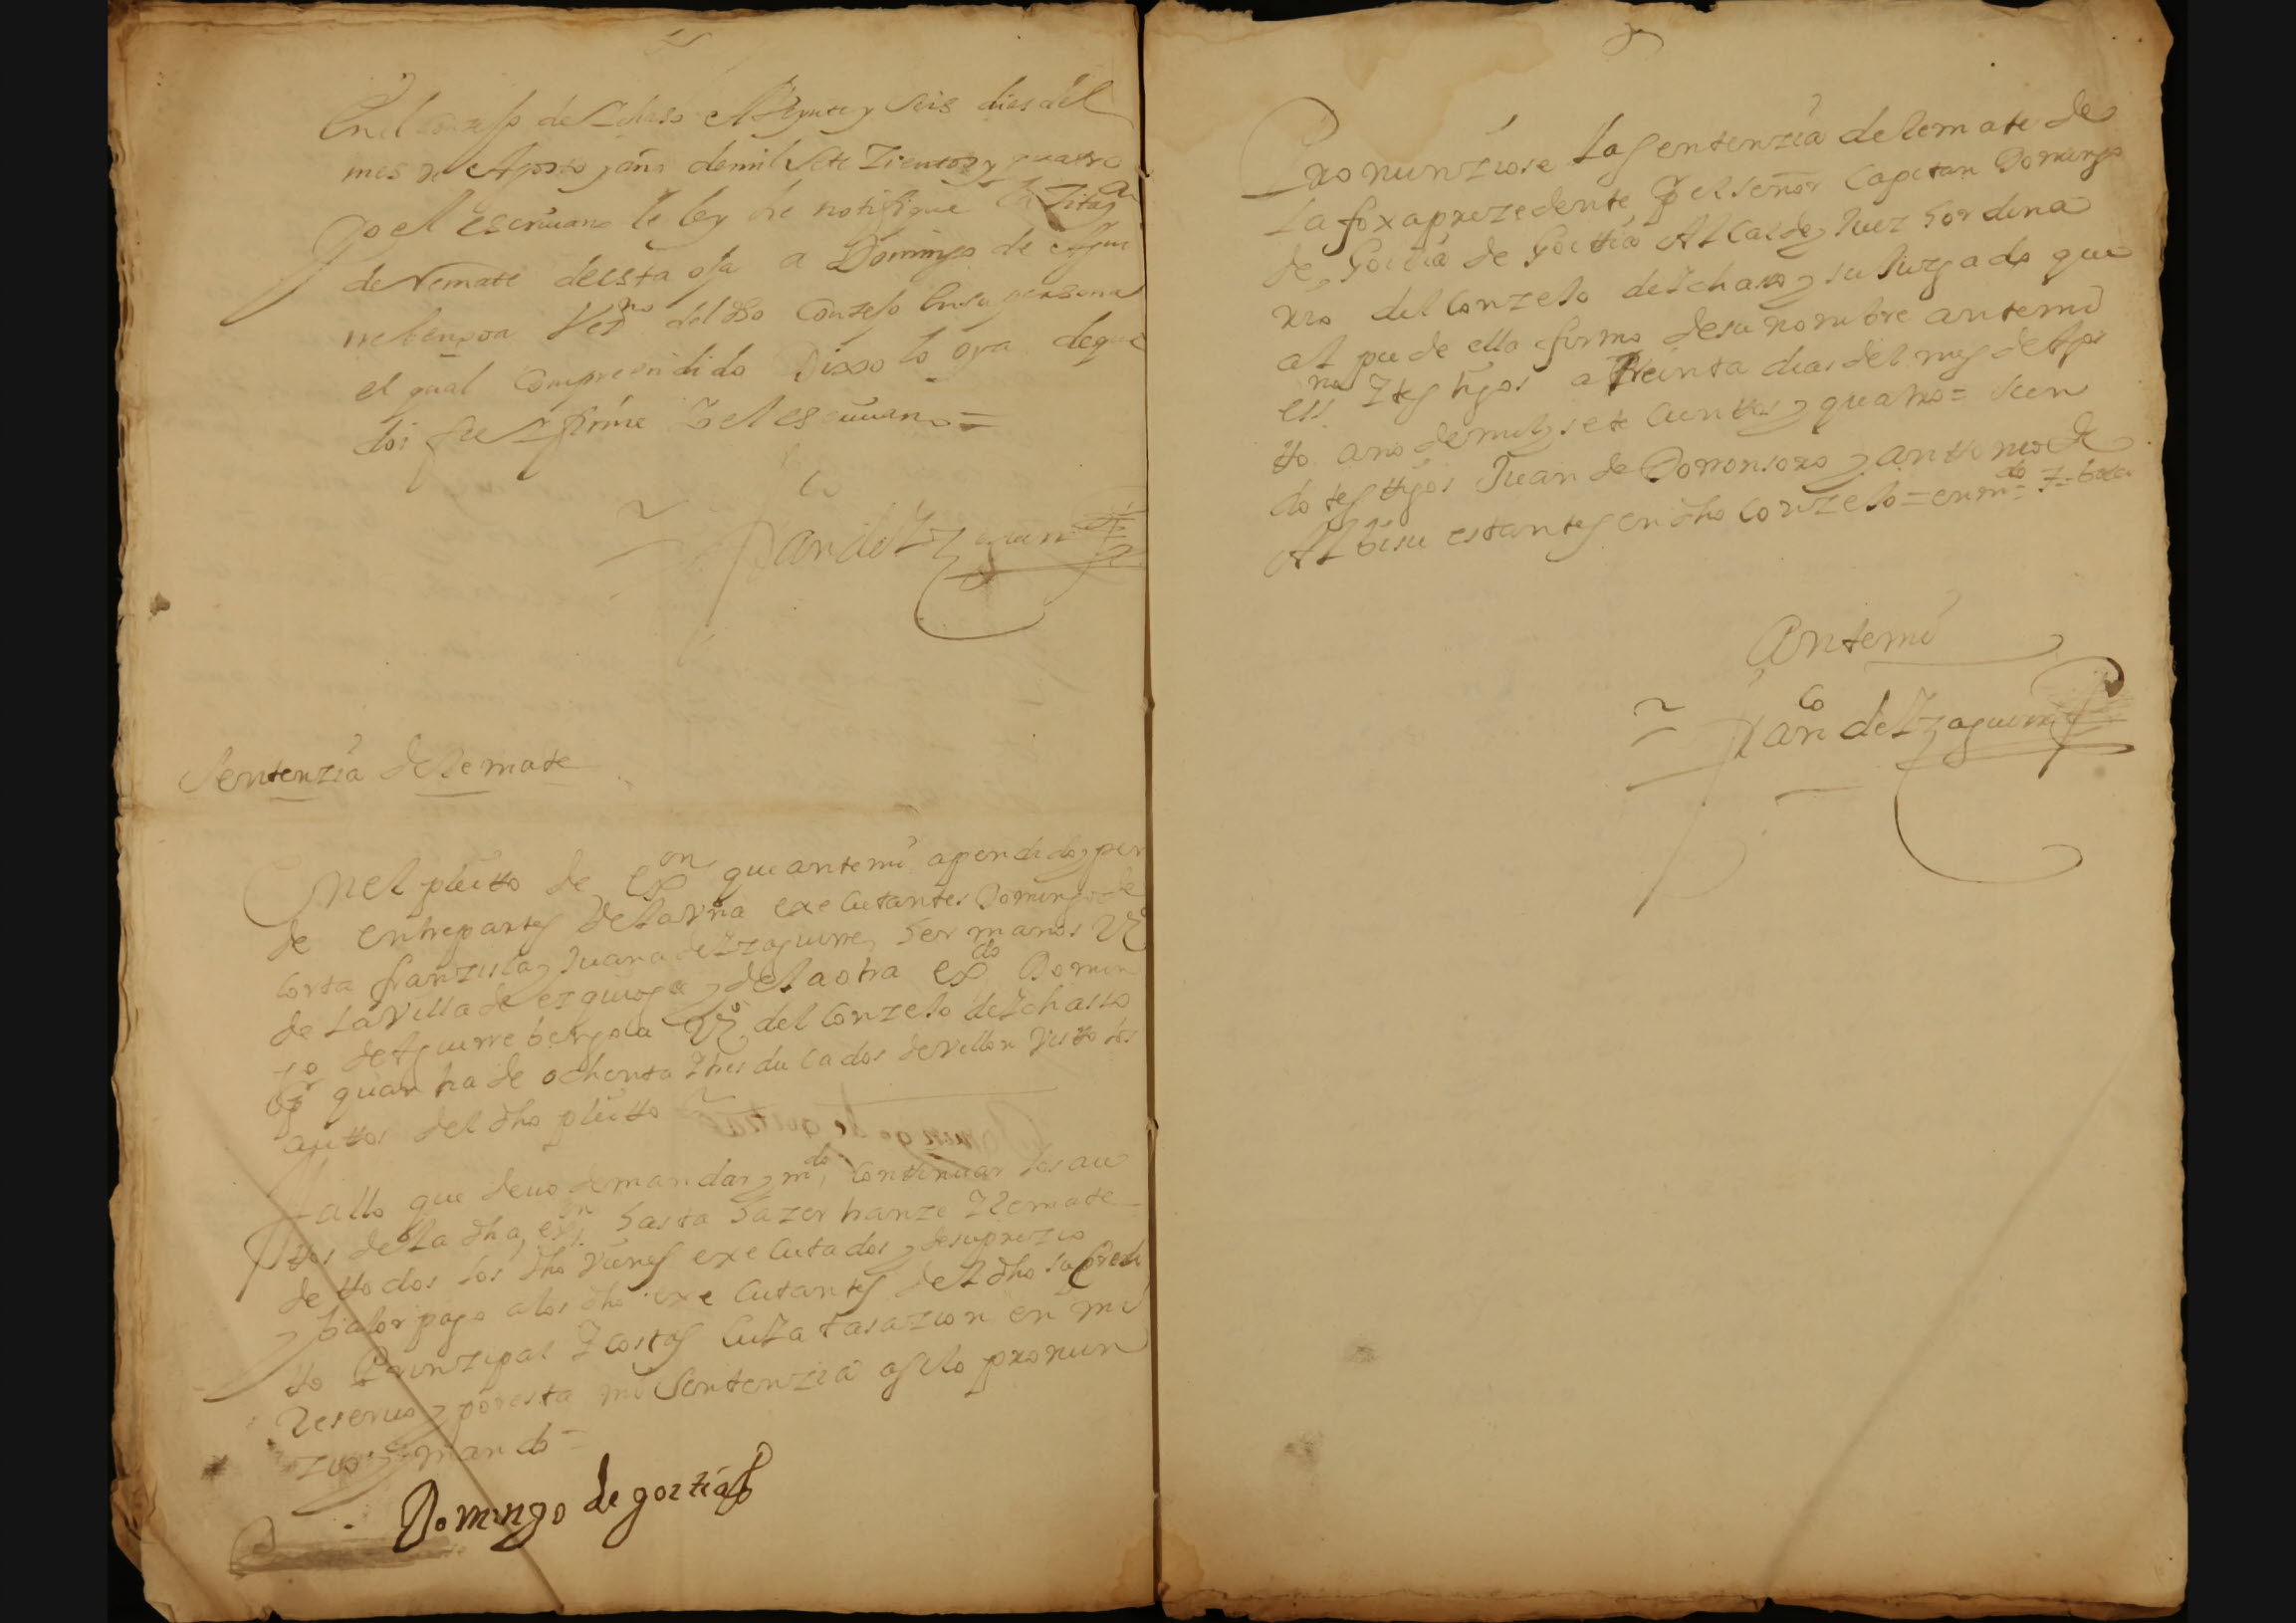 En el Conzejo de ychaso a Veynte y seis dias del
mes de Agosto y año de mil Sete Zientos y quatro
yo el escriuano le ley he notifique la Zitaz.on
de Remate de esta oja a Domingo de Agui
rrebengoa Vez.no del dho Conzejo en su persona
el qual Comprendido Dixo lo oya de que
doi fee y firme Yo el escriuano =
Fran.co de Yzaguirre
Sentenzia de Remate
En el pleitto de ex.on que antemi a pendido y pen
de entre partes De la vna executantes Domingo de
lorta franzisca y Juana de Yzaguirre, Hermanos Vz.os
de la Villa de ezquioga y de la otra ex.do Domin
go de Aguirrebengoa Vz.o del Conzejo de Ychasso
Por quantia de ochenta Ytres ducados de vellon Visto los
auttos del dho pleitto
Fallo que deuo de mandar y m.do Conttinuar los au
ttos de la dha ex.on hasta Hazer tranze Y Remate
de ttodos los dho vienes executados y de su prezio
y balor pago a los dho executantes del dho su Credi
tto Prinzipal Y costas Cuya tasazion en mi
Reseruo y por esta mi Sentenzia assi lo pronun
zio y mando =
Domingo de goitia
Pronunziose La sentenzia de Remate de
La foxa prezedente Por el señor Capitan Domingo
de Goitia de Goittia Alcalde y Juez hordina
rio del Conzejo de Ychaso y su Juzgado que
al pie de ella firmo de su nombre antemi
ess.no Y testigos a Treinta dias del mes de Agos
tto año de mil y sete Cienttos y quatro = sien
do testigos Juan de Dorronsoro y anttonio de
Albisu estantes en dho Conzejo = en m.do =
Antemi
Fran.co de Yzaguirre